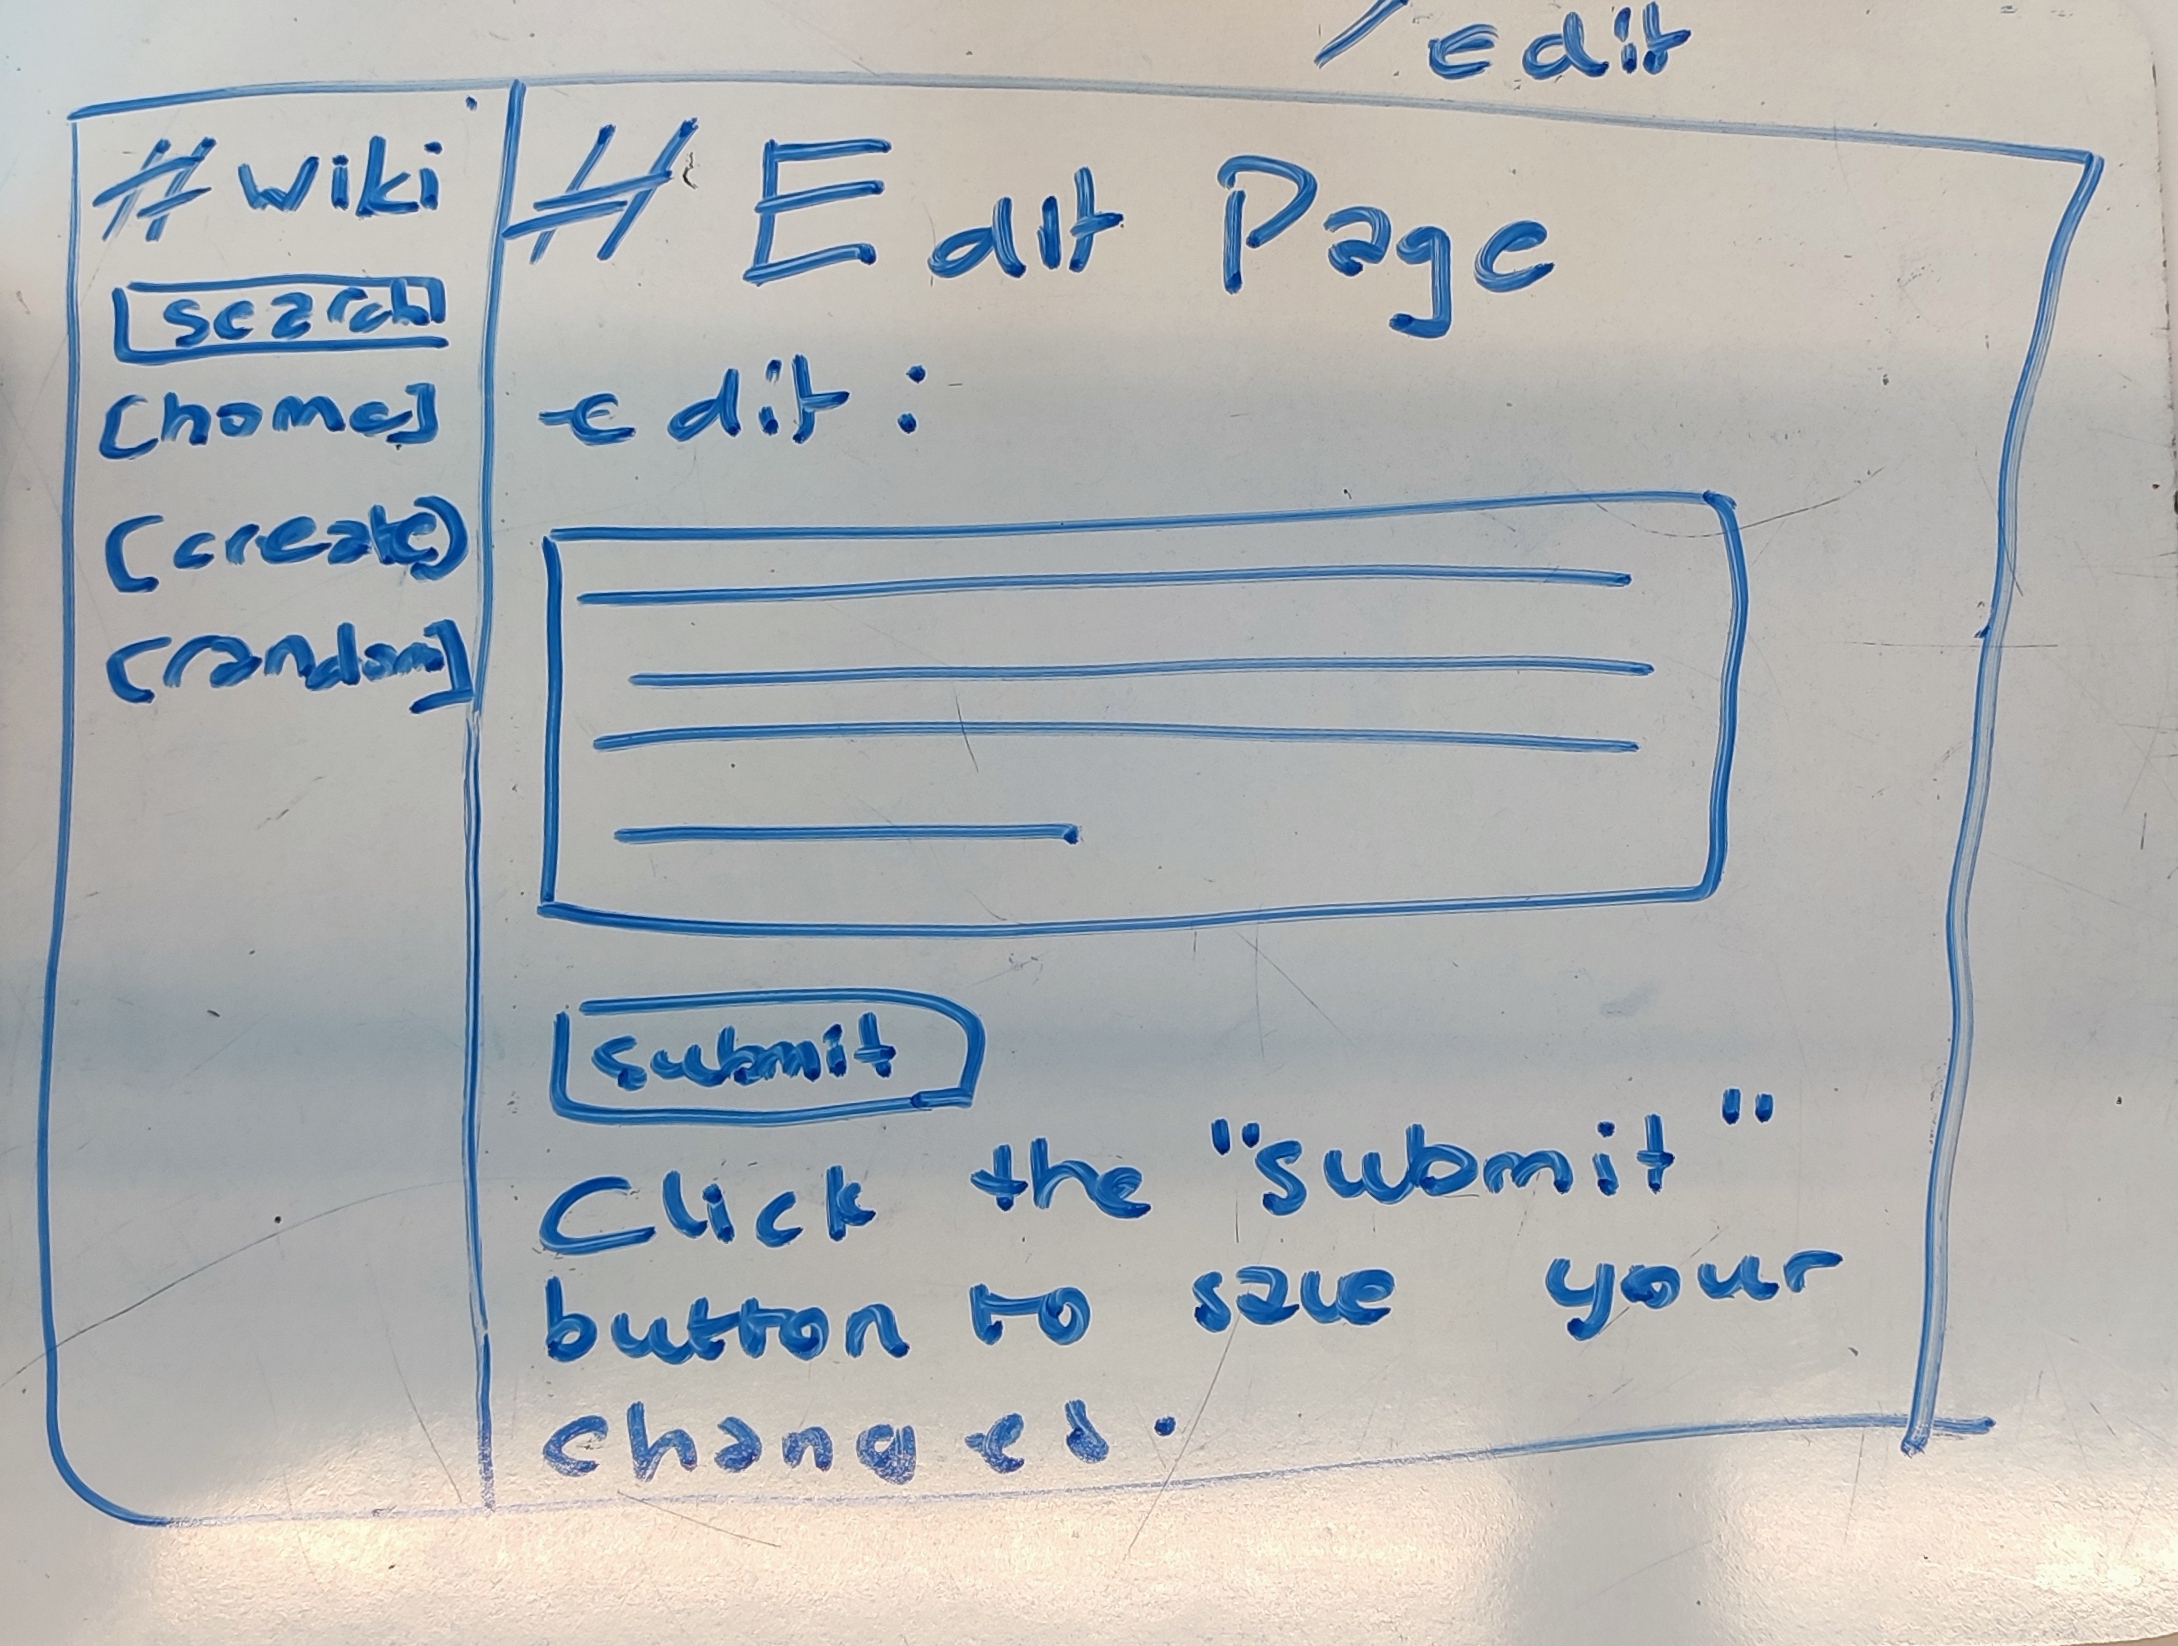 /edit
# wiki
search
[home]
[create)
[random]
# Edit Page
edit:
submit
Click the "submit"
button to save your
changed.